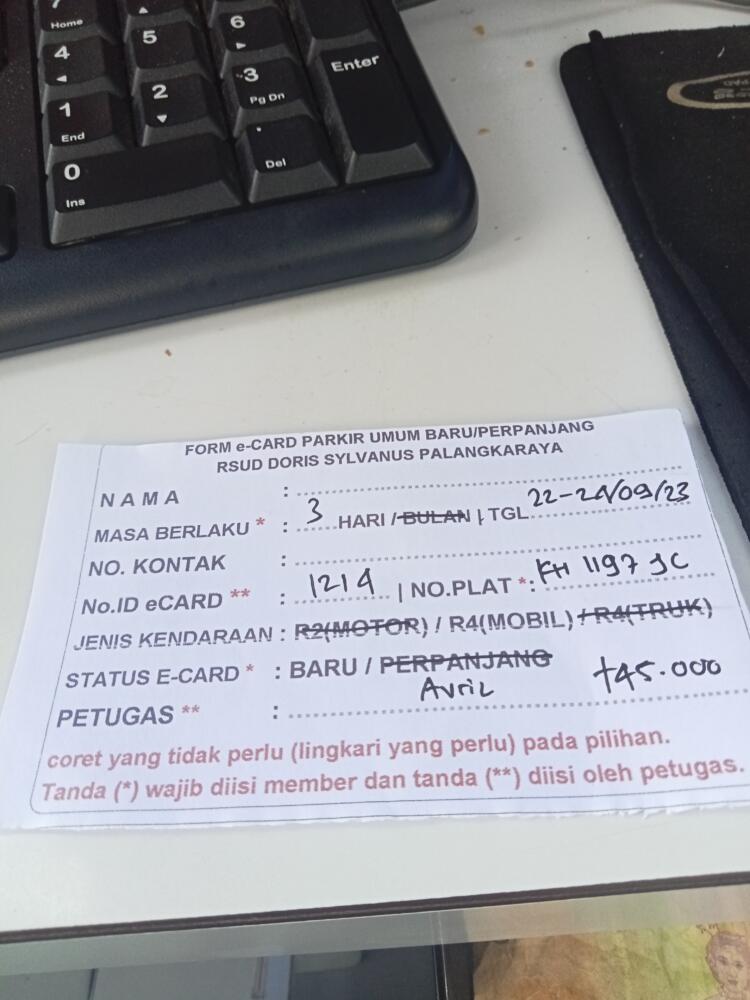 7
Home
4
5
6
1
End
2
3
Pg Dn
Enter
0
Ins
.
Del
FORM e-CARD PARKIR UMUM BARU/PERPANJANG
RSUD DORIS SYLVANUS PALANGKARAYA
NAMA :
MASA BERLAKU * : 3 HARI / BULAN | TGL 22-24/09/23
NO. KONTAK :
No.ID eCARD ** : 1214 | NO.PLAT *: KH 1197 JC
JENIS KENDARAAN : R2(MOTOR) / R4(MOBIL) / R4(TRUK)
STATUS E-CARD * : BARU / PERPANJANG
PETUGAS ** : Avril +45.000
coret yang tidak perlu (lingkari yang perlu) pada pilihan.
Tanda (*) wajib diisi member dan tanda (**) diisi oleh petugas.